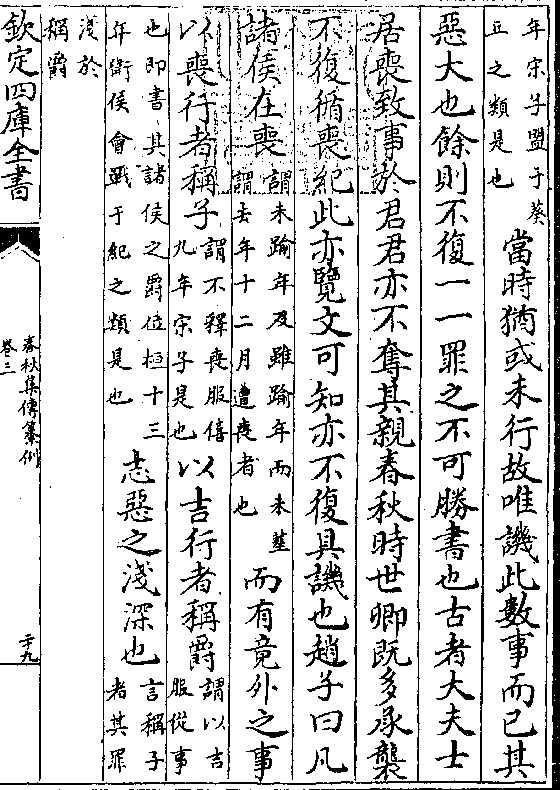 年宋子盟于葵
丘之類是也
當時猶或未行故唯譏此數事而已其
惡大也餘則不復一一罪之不可勝書也古者大夫士
居喪致事於君君亦不奪其親春秋時世卿既多承襲
不復循喪紀此亦覽文可知亦不復具譏也趙子曰凡
諸侯在喪
謂未踰年及雖踰年而未塟
謂去年十二月遭喪者也
而有竟外之事
以喪行者稱子
謂不釋喪服僖
九年宋子是也
以吉行者稱爵
謂以吉
服從事
也即書其諸侯之爵位桓十三
年衛侯會戰于紀之類是也
志惡之淺深也
言稱子
者其罪
淺於
稱爵
欽定四庫全書
春秋集傳纂例
卷三
二十九